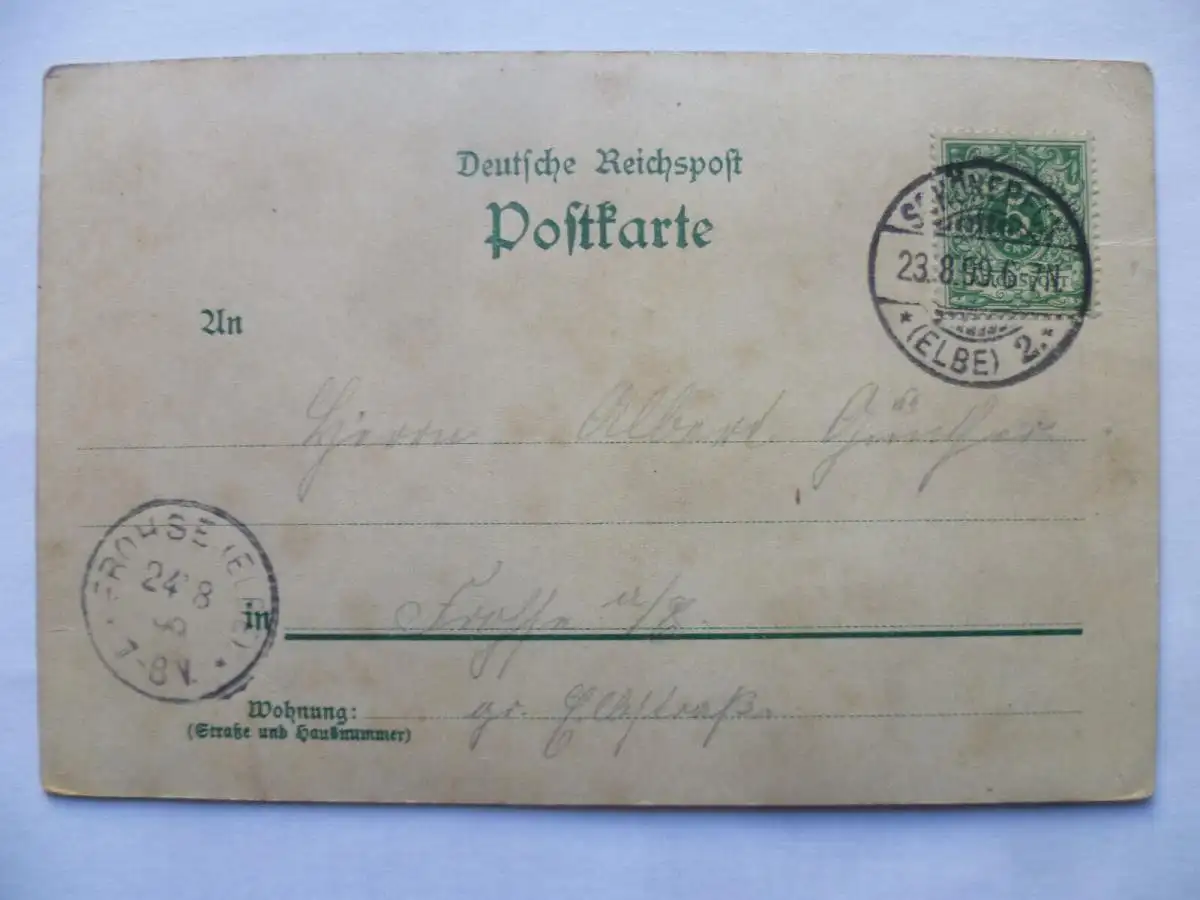 Deutsche Reichspost
Postkarte
SCHÖNEBECK
23.8.99.6-7N.
* (ELBE) 2. *
5
REICHSPOST
An
Herrn Albert Günther
FROHSE (ELBE)
24 8
7-8V.
in Frohse a/E.
Wohnung: gr. Elbstraße
(Straße und Hausnummer)